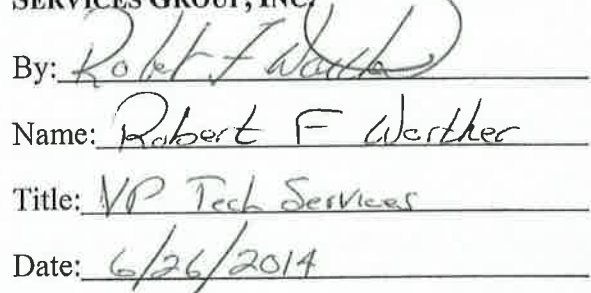 SERVICES GROUP, INC.
By: Robert F Warther
Name: Robert F Warther
Title: VP Tech Services
Date: 6/26/2014